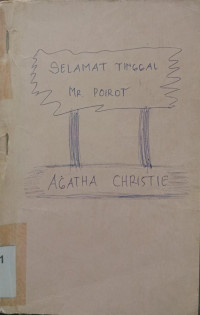 SELAMAT TINGGAL
MR POIROT
AGATHA CHRISTIE
1